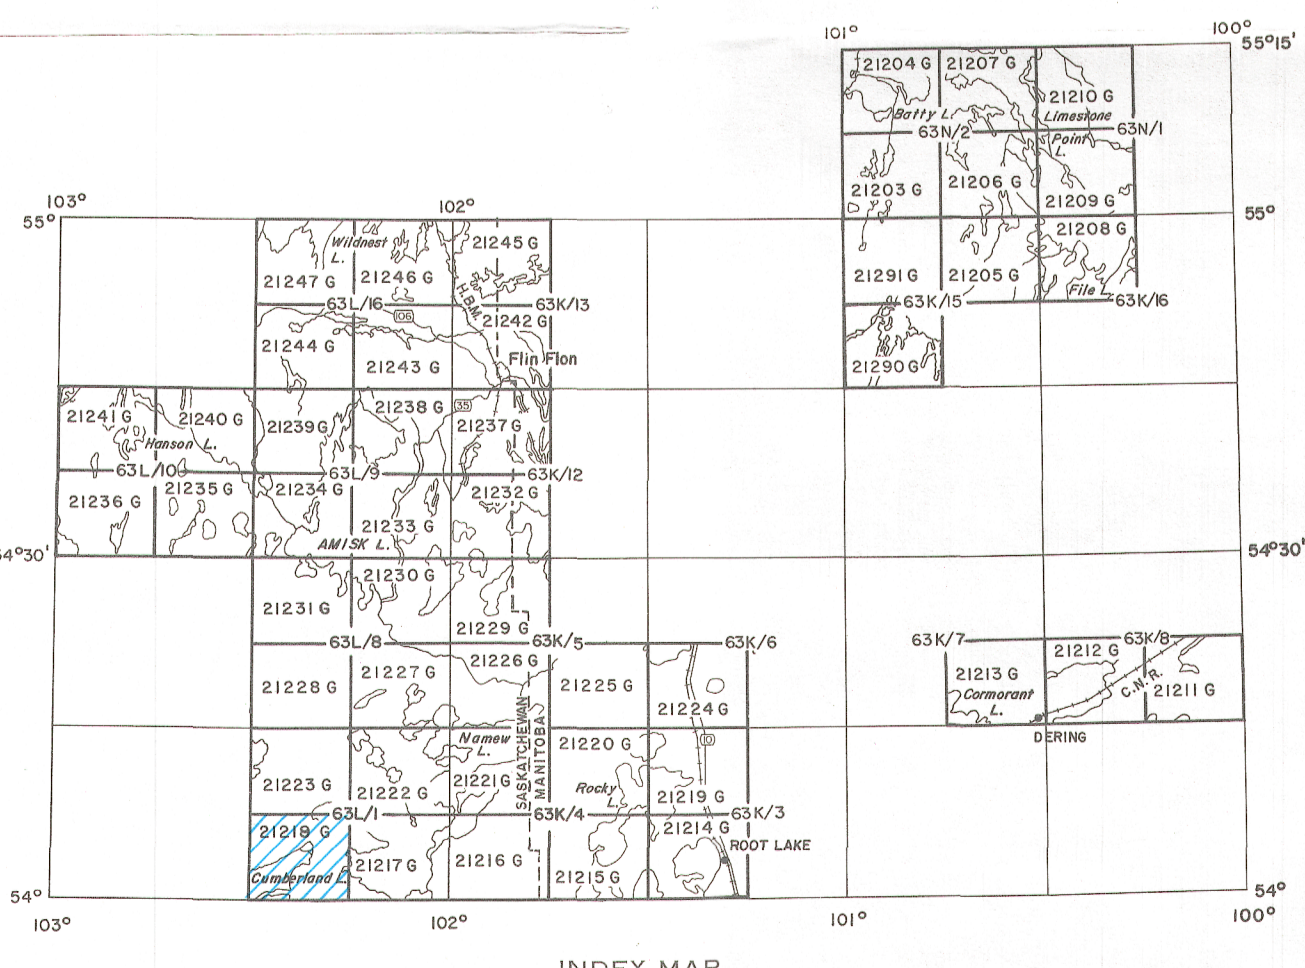 101°
100°
55°15'
21204 G
21207 G
21210 G
Batty L.
Limestone
63N/2
63N/1
Point
L.
21203 G
21206 G
21209 G
103°
102°
55°
55°
21208 G
Wildnest
L.
21245 G
21247 G
21246 G
21291 G
21205 G
File L.
63L/16
63K/13
63K/15
63K/16
H.B.M.
106
21242 G
21244 G
21243 G
Flin Flon
21290 G
21241 G
21240 G
21239 G
21238 G
35
21237 G
Hanson L.
63L/10
63L/9
63K/12
21236 G
21235 G
21234 G
21233 G
21232 G
AMISK L.
54°30'
54°30'
21230 G
21231 G
21229 G
63L/8
63K/5
63K/6
63K/7
63K/8
21228 G
21227 G
21226 G
21225 G
21224 G
21213 G
21212 G
21211 G
Cormorant
L.
C.N.R.
DERING
SASKATCHEWAN
MANITOBA
Namew
L.
21220 G
10
21223 G
21222 G
21221 G
Rocky
L.
21219 G
63L/1
63K/4
63K/3
21218 G
21214 G
ROOT LAKE
21217 G
21216 G
21215 G
Cumberland L.
54°
54°
103°
102°
101°
100°
INDEX MAP